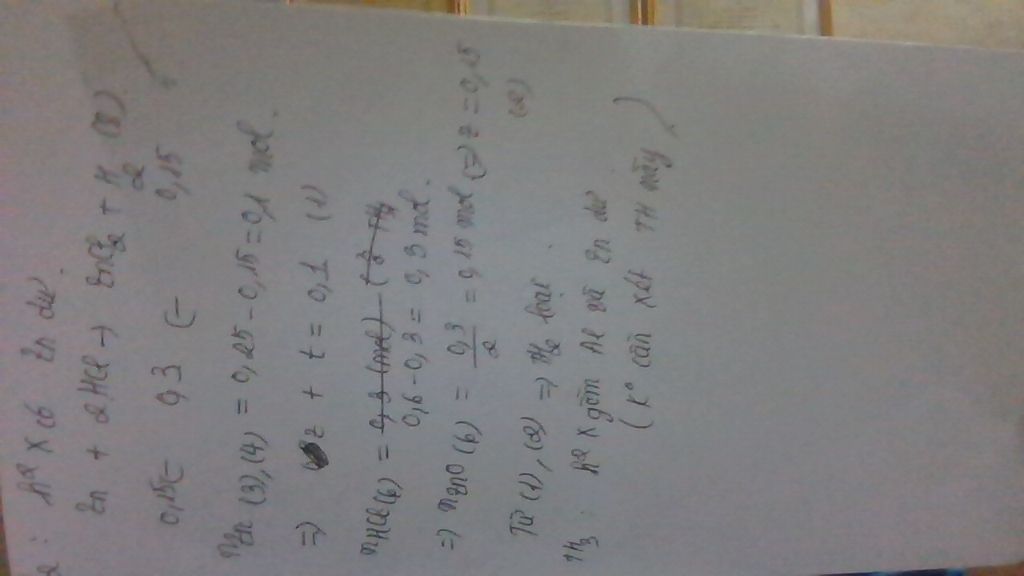 2 : h² X có Zn dư.
Zn + 2HCl → ZnCl2 + H2 (8)
0,15 ← 0,3 ← 0,15
nZn (3),(4) = 0,25 - 0,15 = 0,1 mol.
=> z + t = 0,1 (1)
nHCl(6) = 0,3 (mol)
0,6 - 0,3 = 0,3 mol.
=> nZnO (6) = 0,3/2 = 0,15 mol => z = 0,15 (2)
Từ (1), (2) => loại.
TH3 : h² X gồm Al và Zn dư
(K° cần xét TH này)